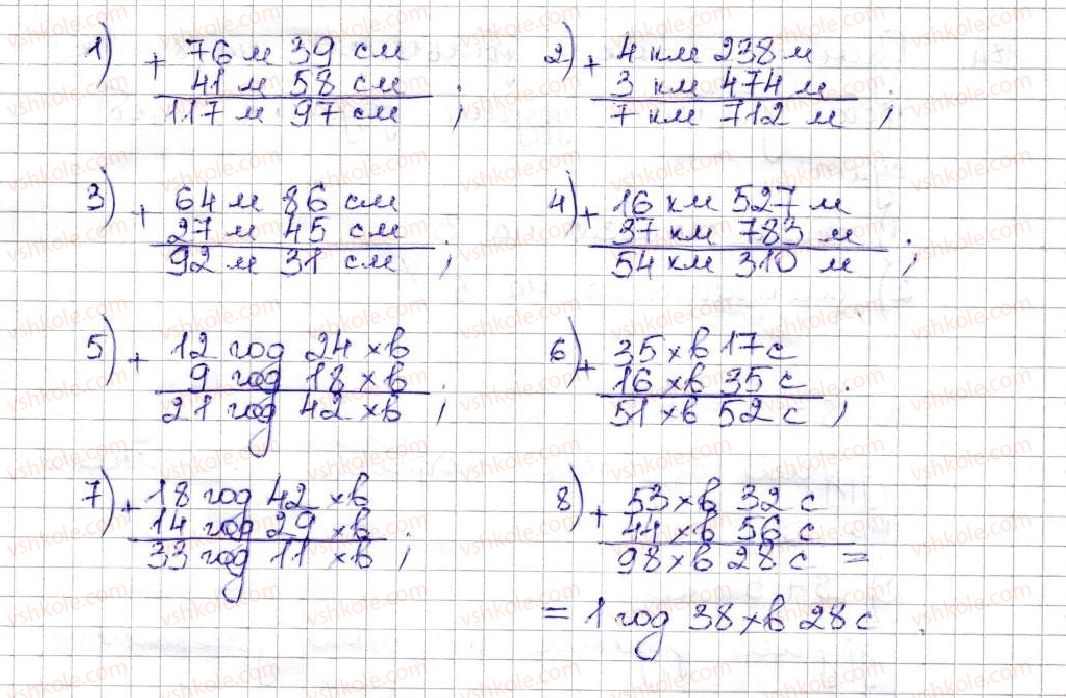 1) + 76 м 39 см
41 м 58 см
117 м 97 см ;
2) + 4 км 238 м
3 км 474 м
7 км 712 м ;
3) + 64 м 86 см
27 м 45 см
92 м 31 см ;
4) + 16 км 527 м
37 км 783 м
54 км 310 м ;
5) + 12 год 24 хв
9 год 18 хв
21 год 42 хв ;
6) + 35 хв 17 с
16 хв 35 с
51 хв 52 с ;
7) + 18 год 42 хв
14 год 29 хв
33 год 11 хв ;
8) + 53 хв 32 с
44 хв 56 с
98 хв 28 с =
= 1 год 38 хв 28 с .